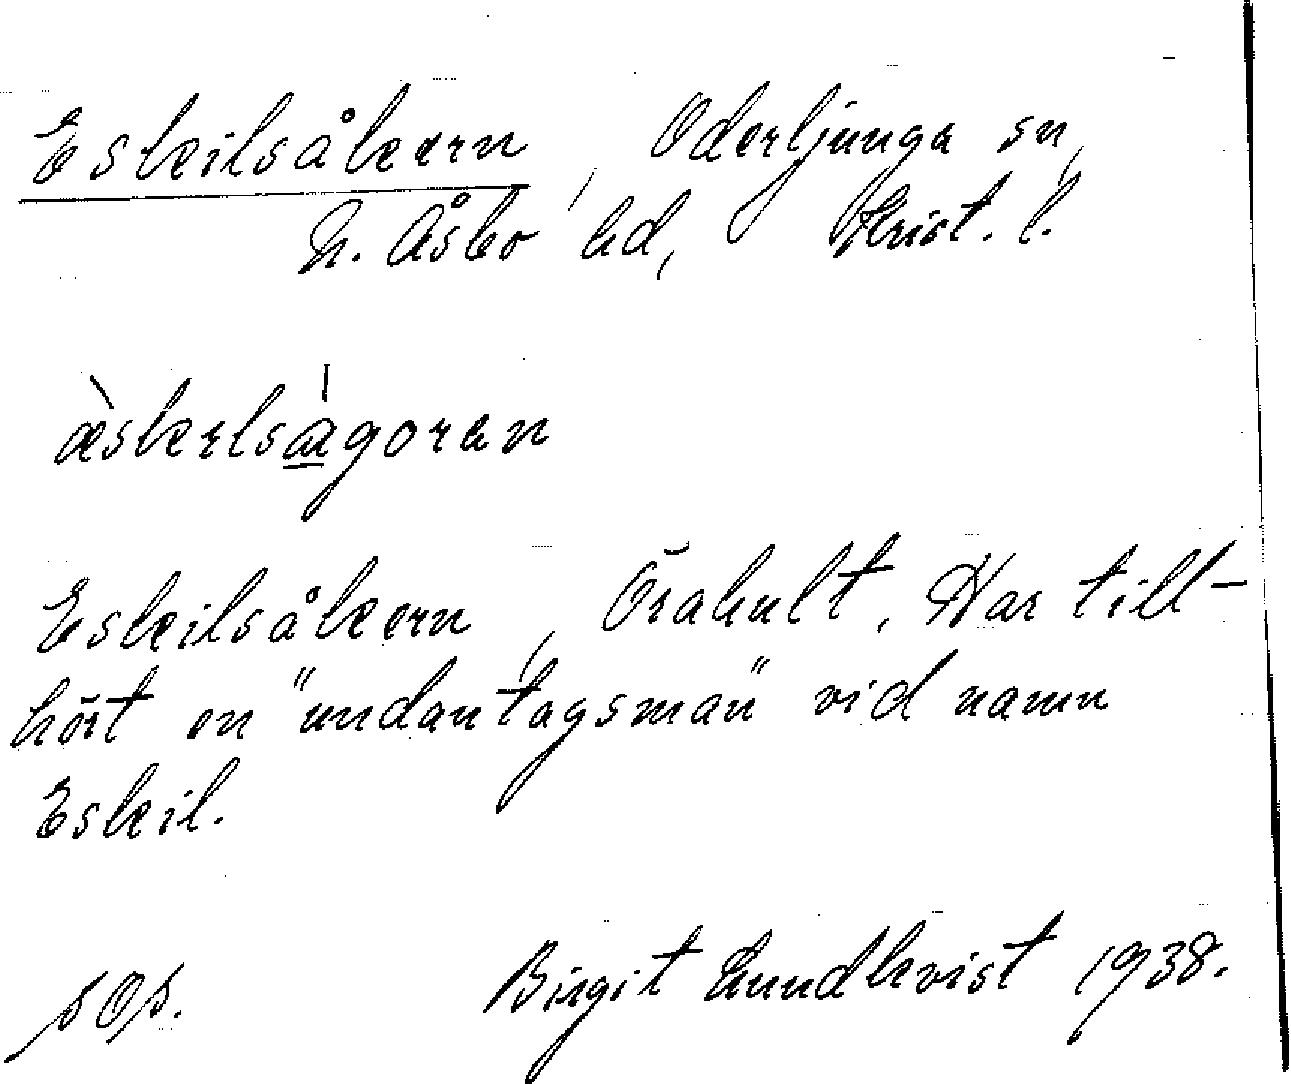 Eskilsåkern, Oderljunga sn,
N. Åsbo hd, Krist. l.
Eskilsåkern, Örahult. Har till-
hört en "undantagsman" vid namn
Eskil.
Birgit Lundkvist 1938.